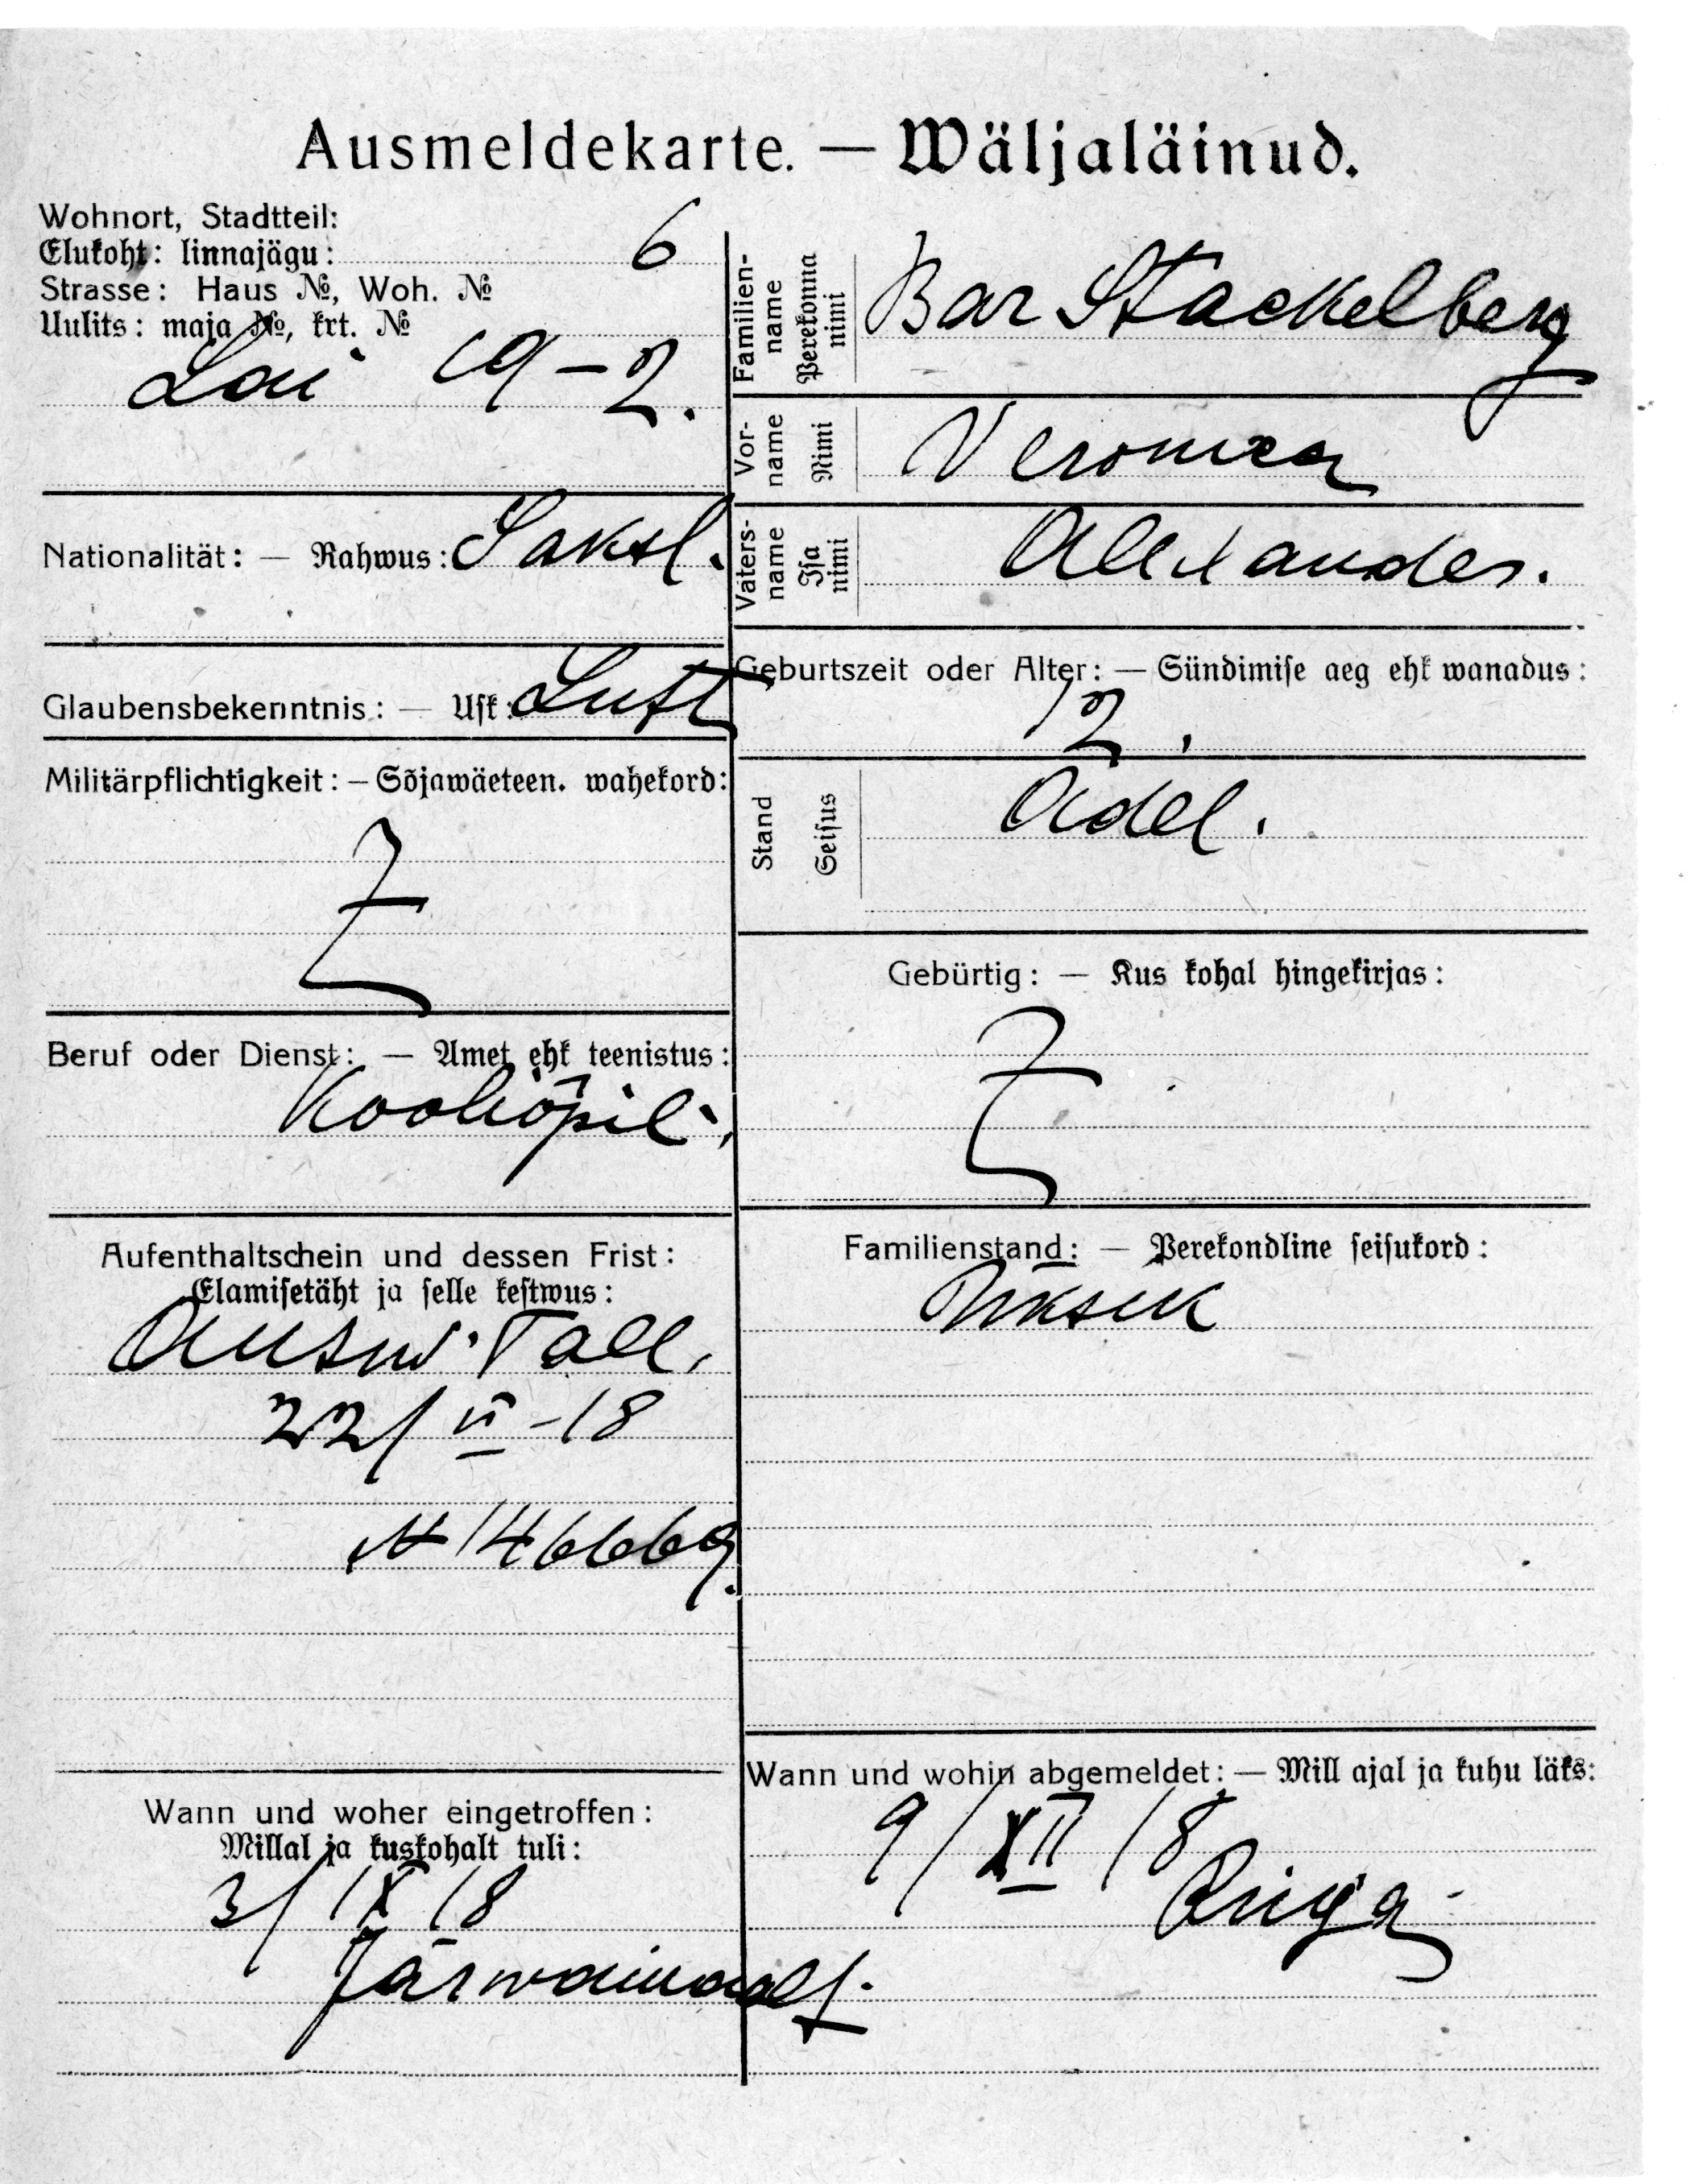 Ausmeldekarte. — Wäljaläinud.
Wohnort, Stadtteil:
Elukoht: linnajägu: 6
Strasse: Haus №, Woh. №
Uulits: maja №, krt. №
Lai 19–2.
Nationalität: — Rahwus: Saksl.
Glaubensbekenntnis: — Usk: Lutt
Militärpflichtigkeit: — Sõjawäeteen. wahekord:
Beruf oder Dienst: — Amet ehk teenistus:
Kooliõpil.
Aufenthaltschein und dessen Frist:
Elamisetäht ja selle kestwus:
Ausw. Tall.
22/VI–18
N 146669.
Wann und woher eingetroffen:
Millal ja kuskohalt tuli:
3/IX 18
Järwamaalt.
Familien-name Perekonna nimi Bar Stackelberg
Vor-name Nimi Veronica
Vaters-name Isa nimi Alexander.
Geburtszeit oder Alter: — Sündimise aeg ehk wanadus:
12.
Stand Seisus Adel.
Gebürtig: — Kus kohal hingekirjas:
Familienstand: — Perekondline seisukord:
Üksik
Wann und wohin abgemeldet: — Mill ajal ja kuhu läks:
9/XII 18
Riiga